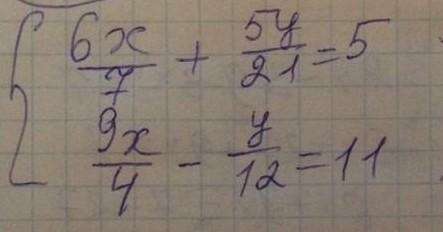 { 6x/7 + 5y/21 = 5
9x/4 - y/12 = 11